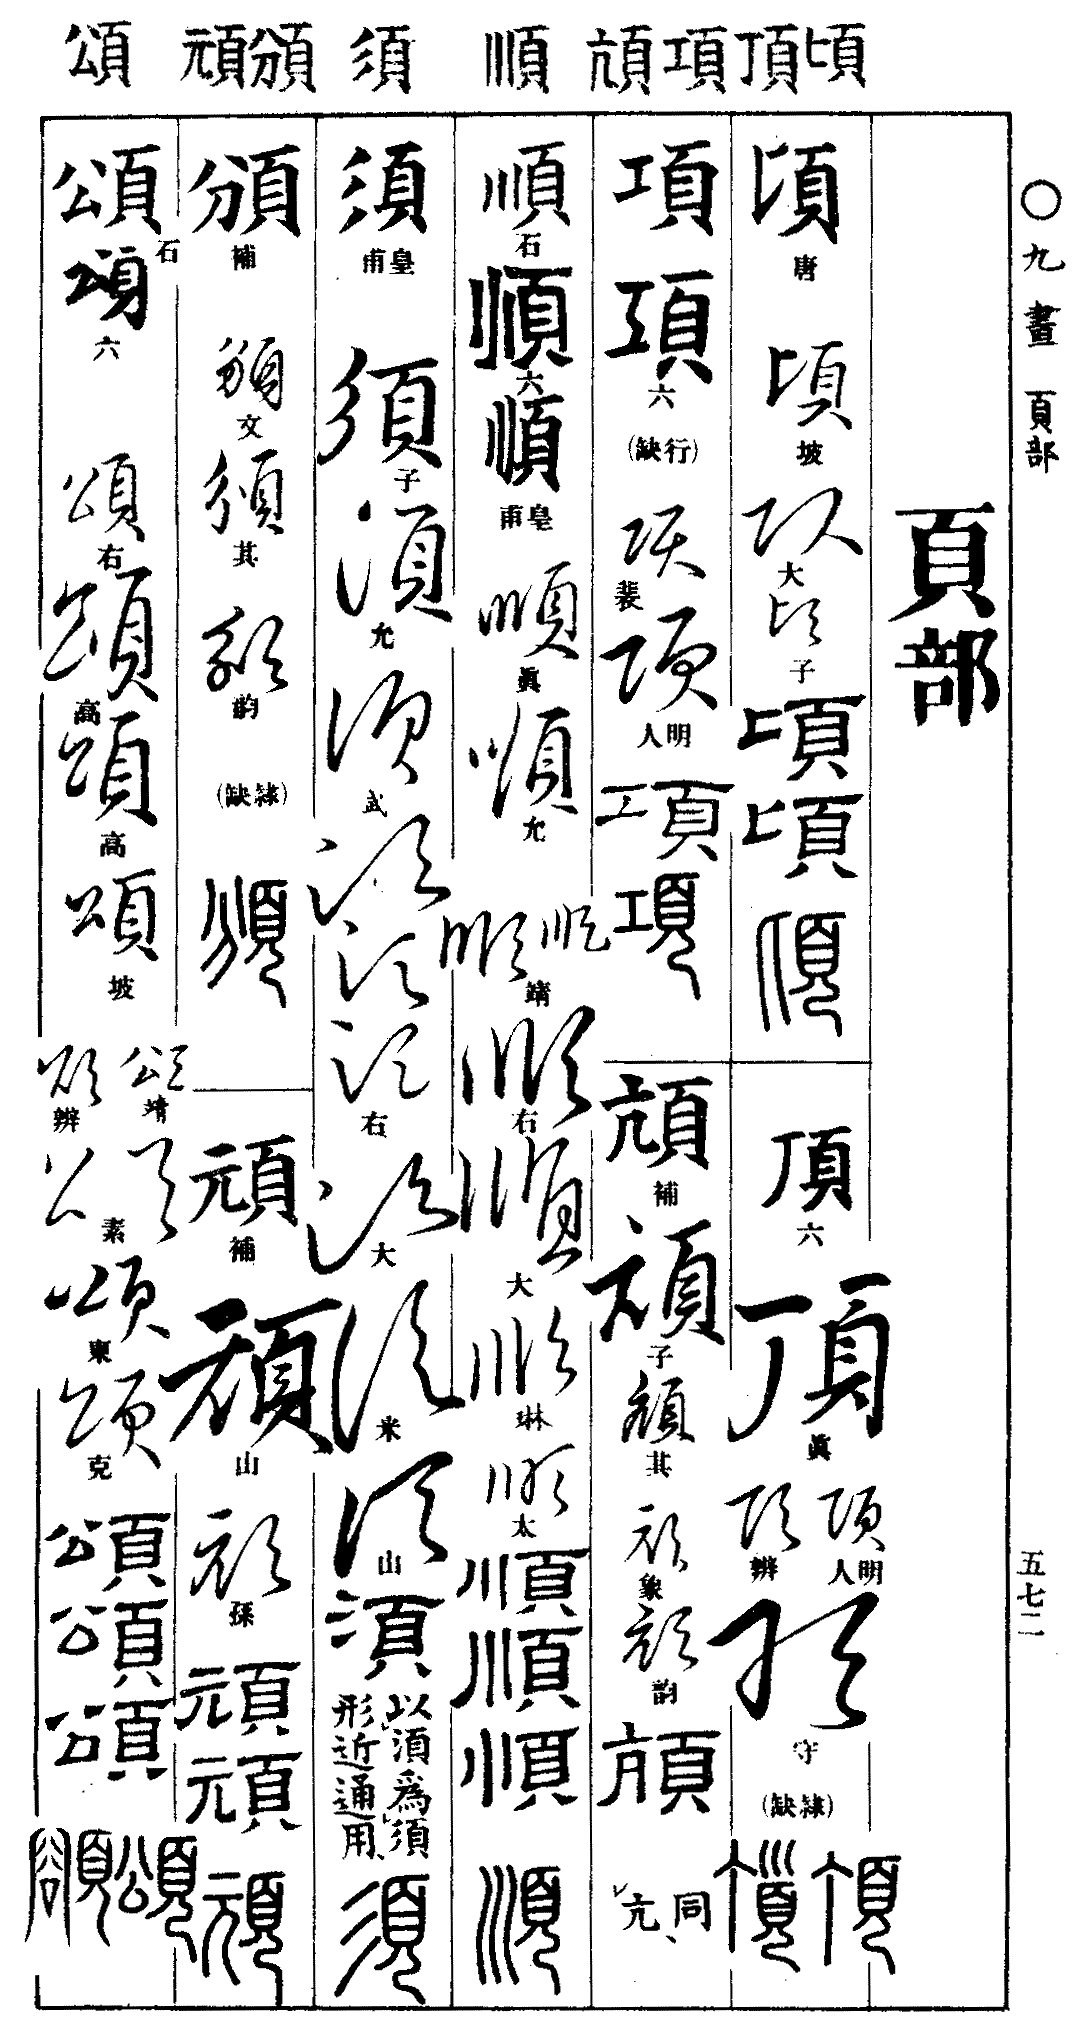 頃頂項頏順須頒頑頌
○九畫 頁部
五七二
頁部
頃唐
頃坡
頃大
頃子
頃
頃
頃
頂六
頂眞
頂明人
頂辨
頂守
(隸缺)
頂
顛
項
項六
(行缺)
項裴
項明人
項
項
頏補
頏子
頏其
頏象
頏韵
頏
亢同
順石
順六
順皇甫
順眞
順允
順
順靖
順右
順大
順琳
順太
順
順
順
順
須皇甫
須子
須允
須武
須
須
須右
須大
須米
須山
湏
以湏爲須
形近通用
須
頒補
頒文
頒其
頒韵
(隸缺)
頒
頑補
頑山
頑孫
頑
頑
頑
頌石
頌六
頌右
頌高
頌高
頌坡
頌靖
頌辨
頌素
頌東
頌克
頌
頌
頌
頌
額